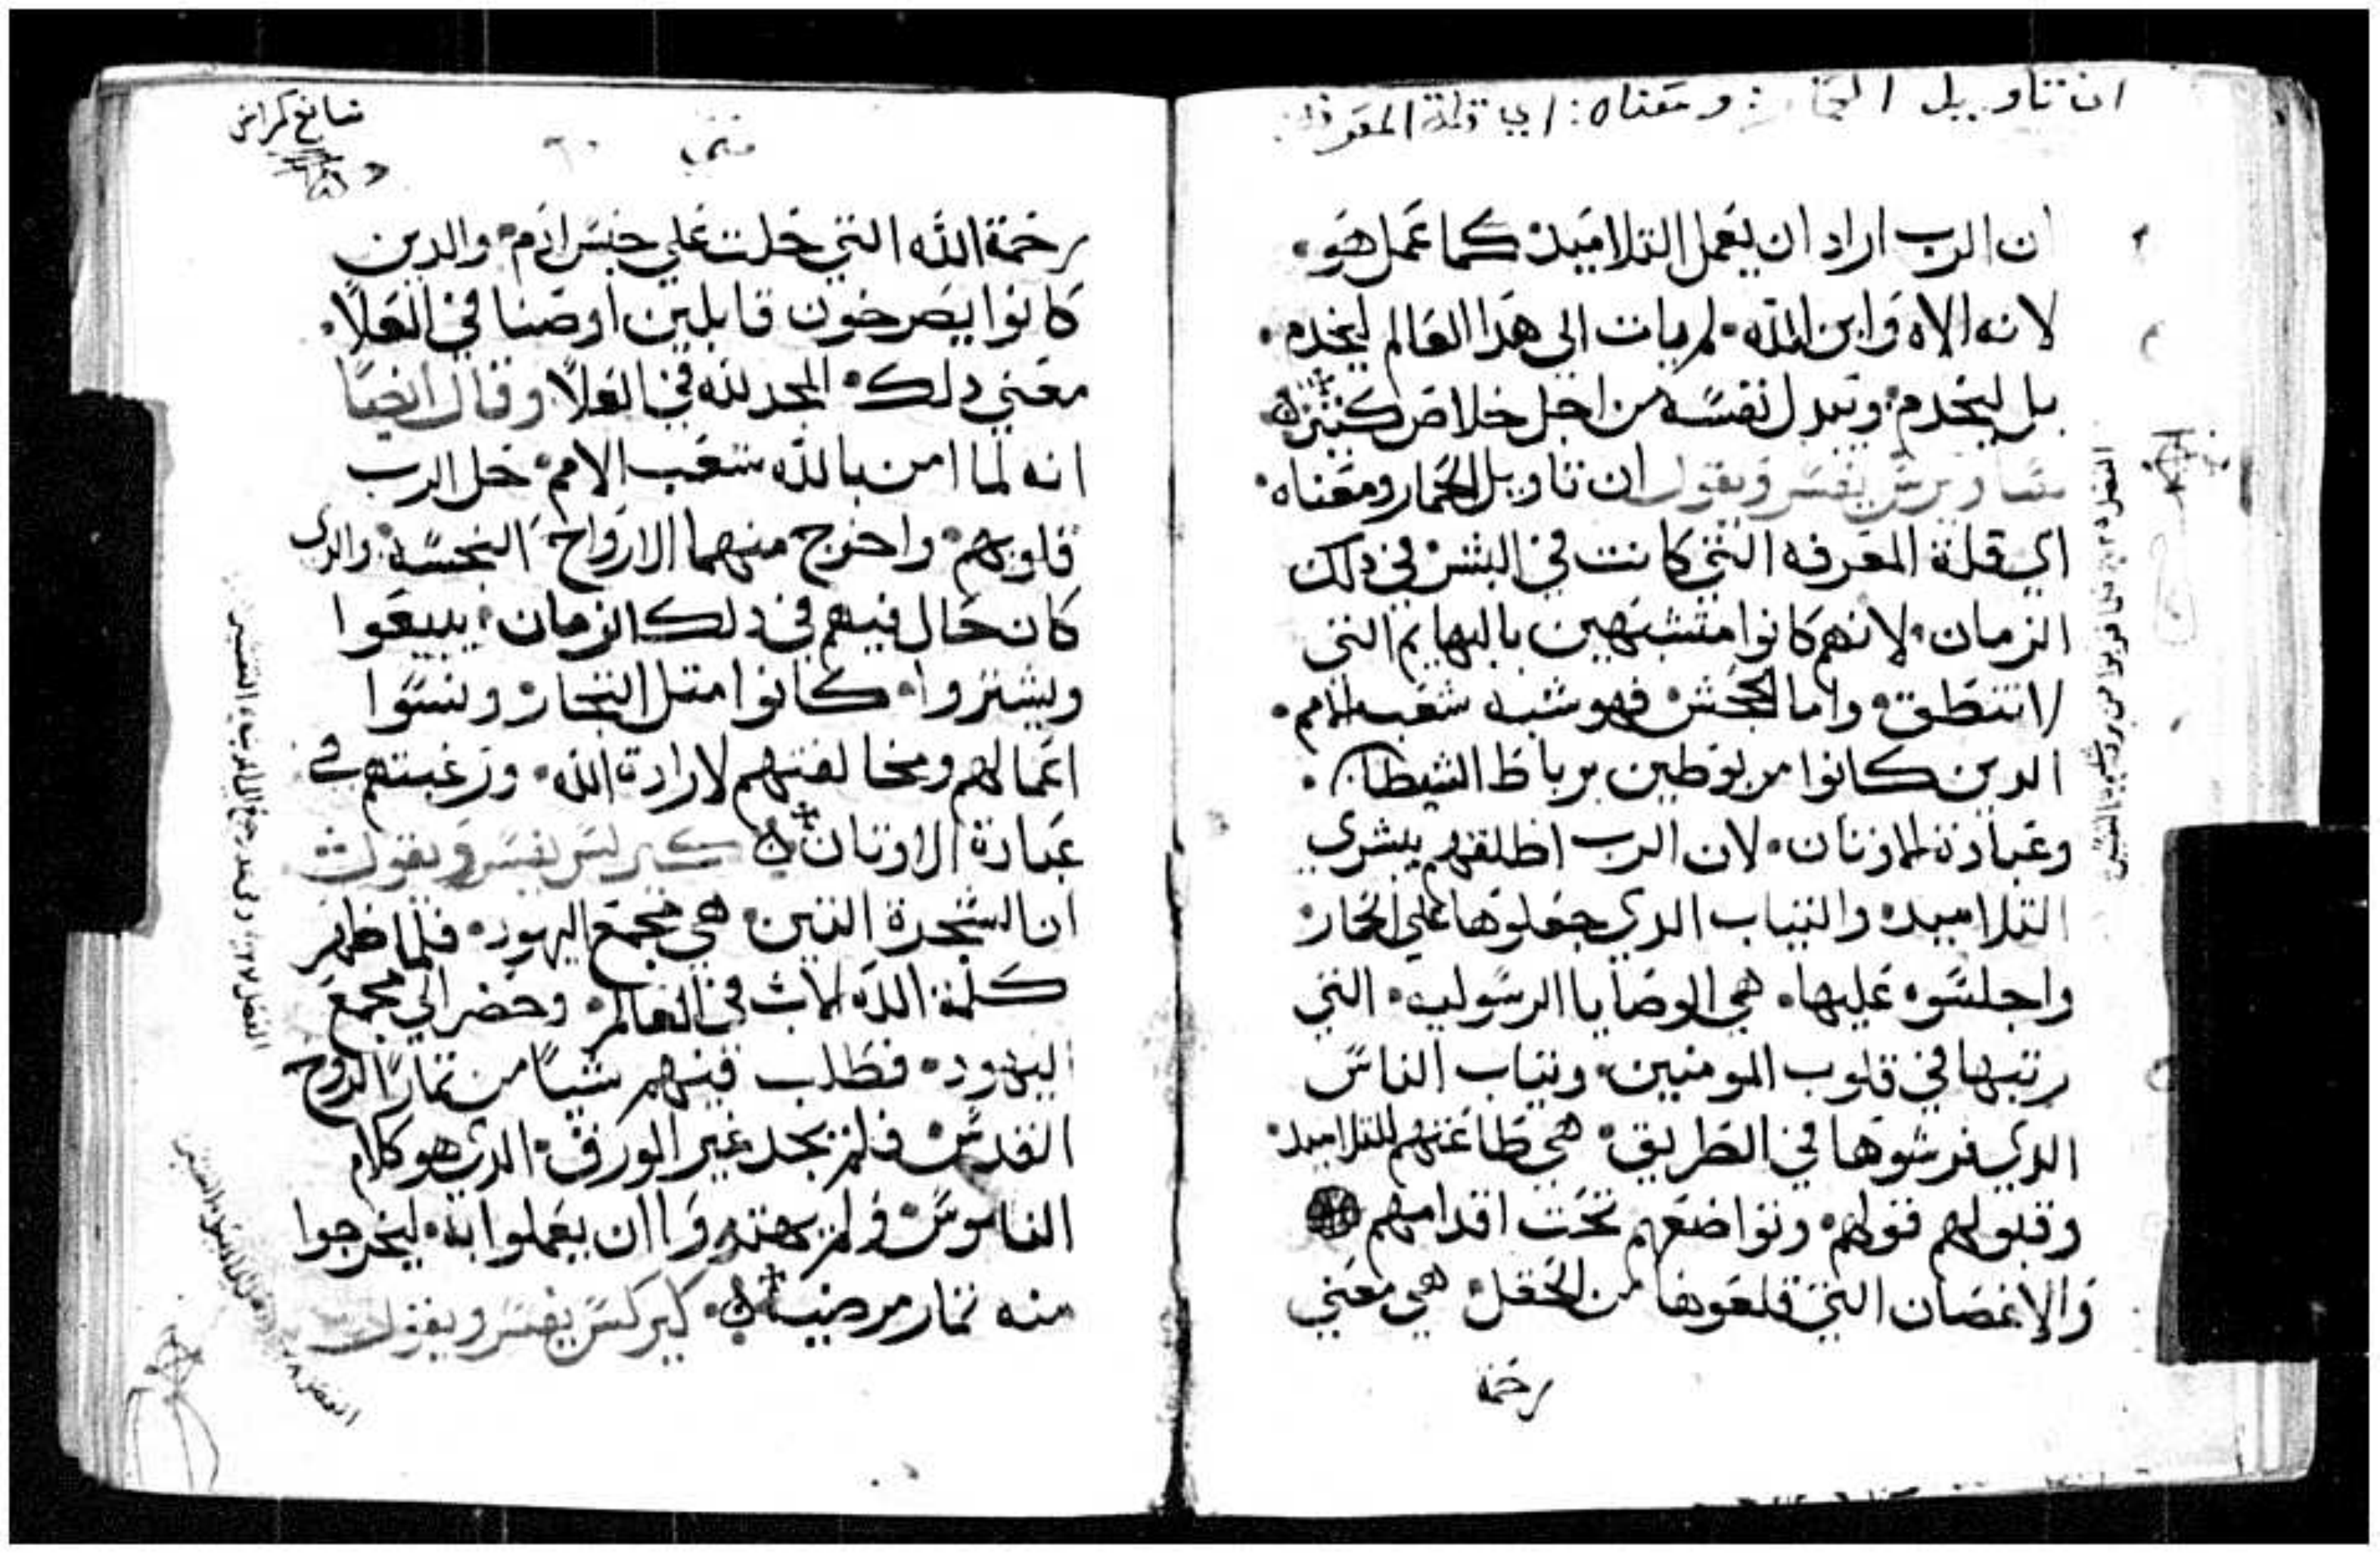 ان تاويل الحمار: ومعناه: اي قلة المعرفه
ان الرب اراد ان يعمل التلاميد كما عمل هو
لانه الاه وابن الله لم يات الي هدا العالم ليخدم
بل ليخدم ويبدل نفسه من اجل خلاص كثيره
يفسر ويقول ان تاويل الحمار ومعناه
اي قلة المعرفه التي كانت في البشر في دلك
الزمان لانهم كانوا متشبهين بالبهايم التي
لا تنطق واما الجحش فهو شبه شعب الامم
الدين كانوا مربوطين برباط الشيطان
وعبادة الاوتان لان الرب اطلقهم ببشري
التلاميد والتياب الدي جعلوها علي الحمار
واجلسوه عليها هي الوصايا الرسوليه التي
رتبها في قلوب المومنين وتياب الناس
الدي فرشوها في الطريق هي طاعتهم للتلاميد
وقبولهم قولهم وتواضعهم تحت اقدامهم
والاغصان التي قلعوها من الحقل هي معني
رحمة
متي
رحمة الله التي حلت علي جنس ادم والدين
كانوا يصرخون قايلين اوصنا في العلا
معني دلك المجد لله في العلا وقال ايضا
انه لما امن بالله شعب الامم حل الرب
قلوبهم واخرج منهما الارواح النجسه والدي
كان حال فيهم في دلك الزمان يبيعوا
ويشتروا كانوا متل التجار ونسوا
اعمالهم ومخالفتهم لارادة الله ورغبتهم في
عبادة الاوتان كيرلس يفسر ويقول
ان الشجرة التين هي مجمع اليهود فلما ظهر
كلمة الله الاب في العالم وحضر الي مجمع
اليهود فطلب فيهم شيا من تمار الروح
القدس فلم يجد غير الورق الدي هو كلام
الناموس ولم يهتموا ان يعملوا به ليخرجوا
منه تمار مرضيه كيرلس يفسر ويقول